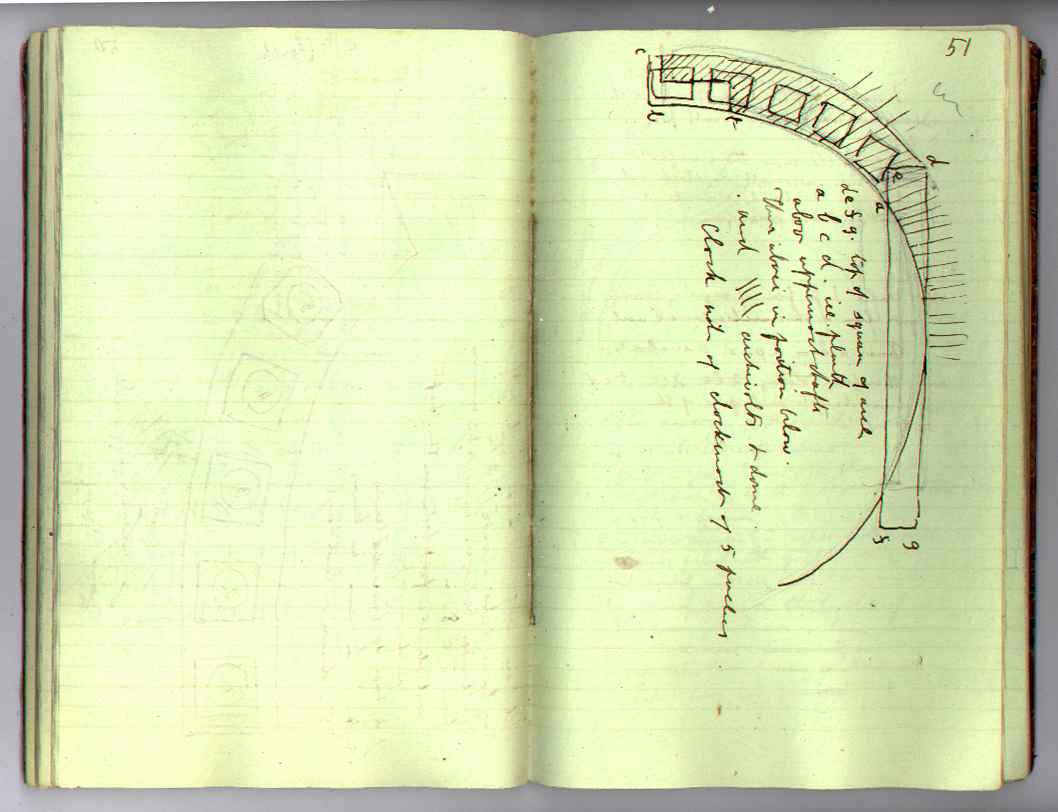 51
c
b
d
e
a
de f g. top of square of arch
a b c d. ice. plinth
above uppermost shafts
Thus above in position below.
and archivolts & dome.
Clock out of clockwork of 5
f
g